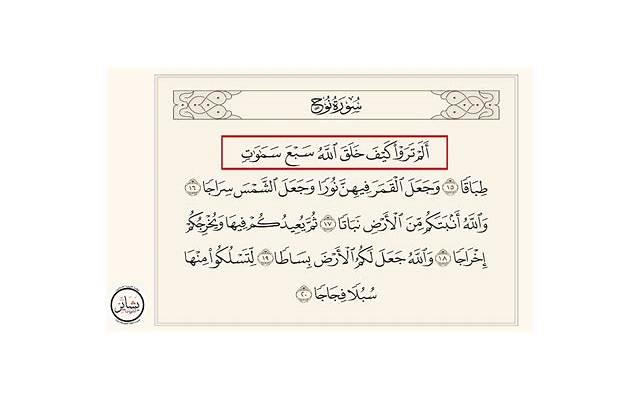 سُورَةُ نُوحٍ
أَلَمْ تَرَوْا۟ كَيْفَ خَلَقَ ٱللَّهُ سَبْعَ سَمَٰوَٰتٍ
طِبَاقًا ١٥ وَجَعَلَ ٱلْقَمَرَ فِيهِنَّ نُورًا وَجَعَلَ ٱلشَّمْسَ سِرَاجًا ١٦
وَٱللَّهُ أَنۢبَتَكُم مِّنَ ٱلْأَرْضِ نَبَاتًا ١٧ ثُمَّ يُعِيدُكُمْ فِيهَا وَيُخْرِجُكُمْ
إِخْرَاجًا ١٨ وَٱللَّهُ جَعَلَ لَكُمُ ٱلْأَرْضَ بِسَاطًا ١٩ لِّتَسْلُكُوا۟ مِنْهَا
سُبُلًا فِجَاجًا ٢٠
بصائر